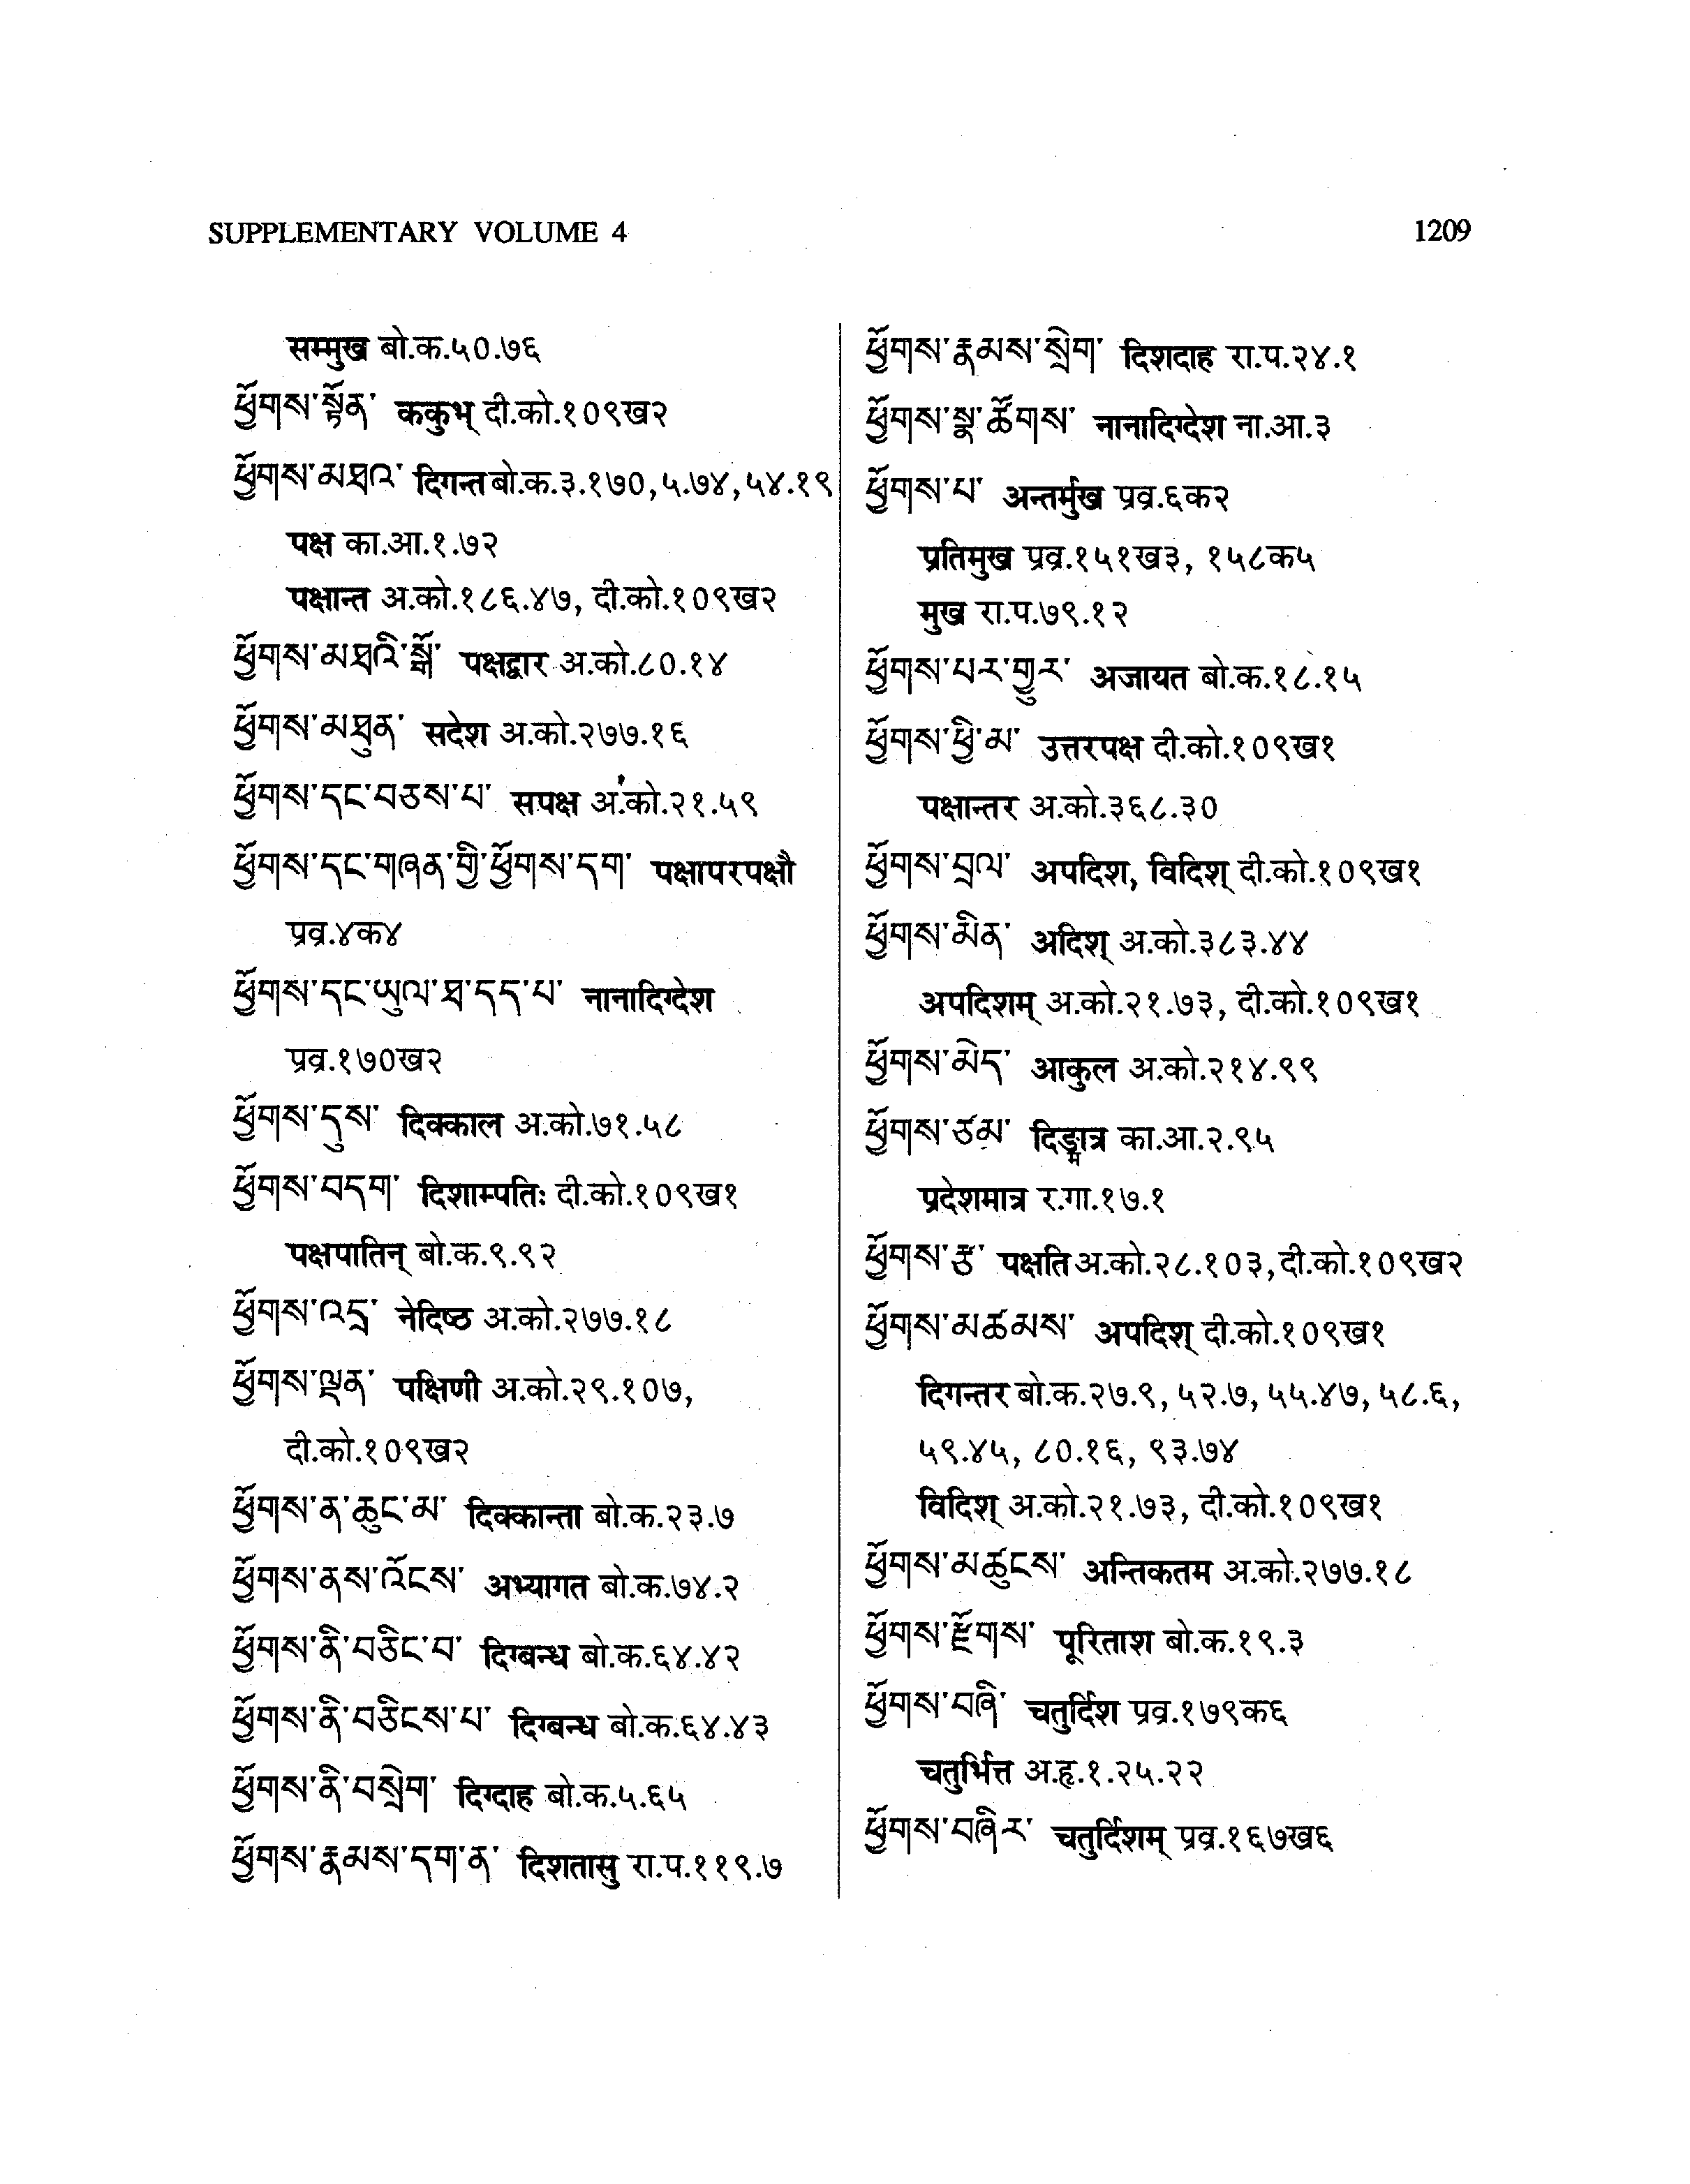 SUPPLEMENTARY VOLUME 4
1209
सम्मुख बो.क.५०.७६
ཕྱོགས་སྟོན་ ककुभ् दी.को.१०९ख२
ཕྱོགས་མཐའ་ दिगन्त बो.क.३.१७०,५.७४,५४.१९
पक्ष का.आ.१.७२
पक्षान्त अ.को.१८६.४७, दी.को.१०९ख२
ཕྱོགས་མཐའི་སྒོ་ पक्षद्वार अ.को.८०.१४
ཕྱོགས་མཐུན་ सदेश अ.को.२७७.१६
ཕྱོགས་དང་བཅས་པ་ सपक्ष अ.को.२१.५९
ཕྱོགས་དང་གཞན་གྱི་ཕྱོགས་དག་ पक्षापरपक्षौ
प्रव्र.४क४
ཕྱོགས་དང་ཡུལ་ཐ་དད་པ་ नानादिग्देश
प्रव्र.१७०ख२
ཕྱོགས་དུས་ दिक्काल अ.को.७१.५८
ཕྱོགས་བདག་ दिशाम्पतिः दी.को.१०९ख१
पक्षपातिन् बो.क.९.९२
ཕྱོགས་འདྲ་ नेदिष्ठ अ.को.२७७.१८
ཕྱོགས་ལྡན་ पक्षिणी अ.को.२९.१०७,
दी.को.१०९ख२
ཕྱོགས་ན་ཆུང་མ་ दिक्कान्ता बो.क.२३.७
ཕྱོགས་ནས་འོངས་ अभ्यागत बो.क.७४.२
ཕྱོགས་ནི་བཅིང་བ་ दिग्बन्ध बो.क.६४.४२
ཕྱོགས་ནི་བཅིངས་པ་ दिग्बन्ध बो.क.६४.४३
ཕྱོགས་ནི་བསྲེག་ दिग्दाह बो.क.५.६५
ཕྱོགས་རྣམས་དག་ན་ दिशतासु रा.प.११९.७
ཕྱོགས་རྣམས་སྲེག་ दिशदाह रा.प.२४.१
ཕྱོགས་སྣ་ཚོགས་ नानादिग्देश ना.आ.३
ཕྱོགས་པ་ अन्तर्मुख प्रव्र.६क२
प्रतिमुख प्रव्र.१५१ख३, १५८क५
मुख रा.प.७९.१२
ཕྱོགས་པར་གྱུར་ अजायत बो.क.१८.१५
ཕྱོགས་ཕྱི་མ་ उत्तरपक्ष दी.को.१०९ख१
पक्षान्तर अ.को.३६८.३०
ཕྱོགས་བྲལ་ अपदिश, विदिश् दी.को.१०९ख१
ཕྱོགས་མིན་ अदिश् अ.को.३८३.४४
अपदिशम् अ.को.२१.७३, दी.को.१०९ख१
ཕྱོགས་མེད་ आकुल अ.को.२१४.९९
ཕྱོགས་ཙམ་ दिङ्मात्र का.आ.२.९५
प्रदेशमात्र र.गा.१७.१
ཕྱོགས་རྩ་ पक्षति अ.को.२८.१०३,दी.को.१०९ख२
ཕྱོགས་མཚམས་ अपदिश् दी.को.१०९ख१
दिगन्तर बो.क.२७.९, ५२.७, ५५.४७, ५८.६,
५९.४५, ८०.१६, ९३.७४
विदिश् अ.को.२१.७३, दी.को.१०९ख१
ཕྱོགས་མཚུངས་ अन्तिकतम अ.को.२७७.१८
ཕྱོགས་རྫོགས་ पूरिताश बो.क.१९.३
ཕྱོགས་བཞི་ चतुर्दिश प्रव्र.१७९क६
चतुर्भित्त अ.हृ.१.२५.२२
ཕྱོགས་བཞིར་ चतुर्दिशम् प्रव्र.१६७ख६